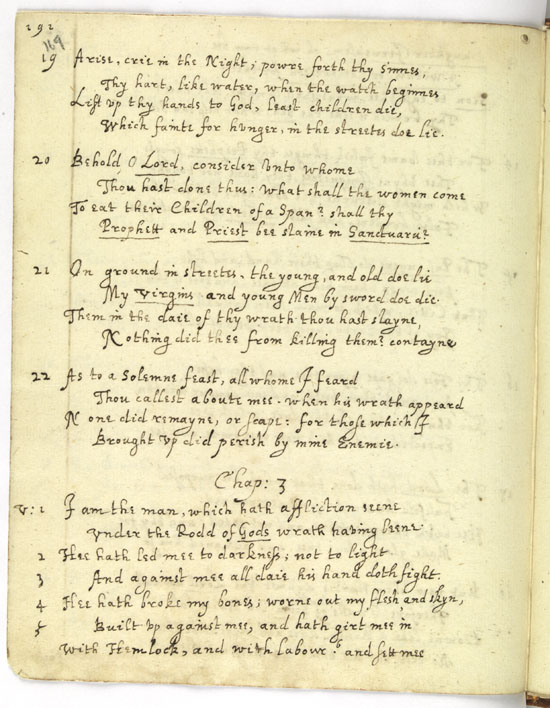 191
169
19 Arise, crie in the Night; powre forth thy sinnes,
Thy hart, like water, when the watch beginnes
Lift up thy hands to God, least children die,
Which fainte for hunger, in the streetes doe lie.
20 Behold O Lord, consider unto whome
Thou hast done thus: what shall the women come
To eat their Children of a Span? shall thy
Prophett and Priest bee slaine in Sanctuarie?
21 On ground in streetes, the young, and old doe lie
My virgins and young Men by sword doe die
Them in the daie of thy wrath thou hast slayne,
Nothing did thee from killing them? contayne
22 As to a Solemne feast, all whome I feard
Thou callest aboute mee. when his wrath appeard
None did remayne, or scape: for those which I
Brought up did perish by mine Enemie.
Chap: 3
v: 1 I am the man, which hath affliction seene
Under the Rodd of Gods wrath having beene
2 Hee hath led mee to darkness; not to light
3 And against mee all daie his hand doth fight.
4 Hee hath broke my bones; worne out my flesh and skyn,
5 Built up against mee, and hath girt mee in
With Hemlock, and with labour. 6 and sett mee